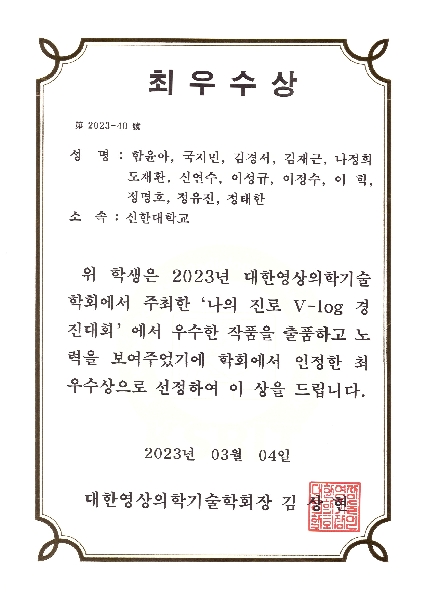 최우수상
第 2023-40 號
성 명 : 함윤아, 국지민, 김경서, 김재근, 나정희
도재환, 신연수, 이성규, 이정수, 이 혁,
정명호, 정유진, 정태한
소 속 : 신한대학교
위 학생은 2023년 대한영상의학기술
학회에서 주최한 ‘나의 진로 V-log 경
진대회’ 에서 우수한 작품을 출품하고 노
력을 보여주었기에 학회에서 인정한 최
우수상으로 선정하여 이 상을 드립니다.
2023년 03월 04일
대한영상의학기술학회장 김 상 현